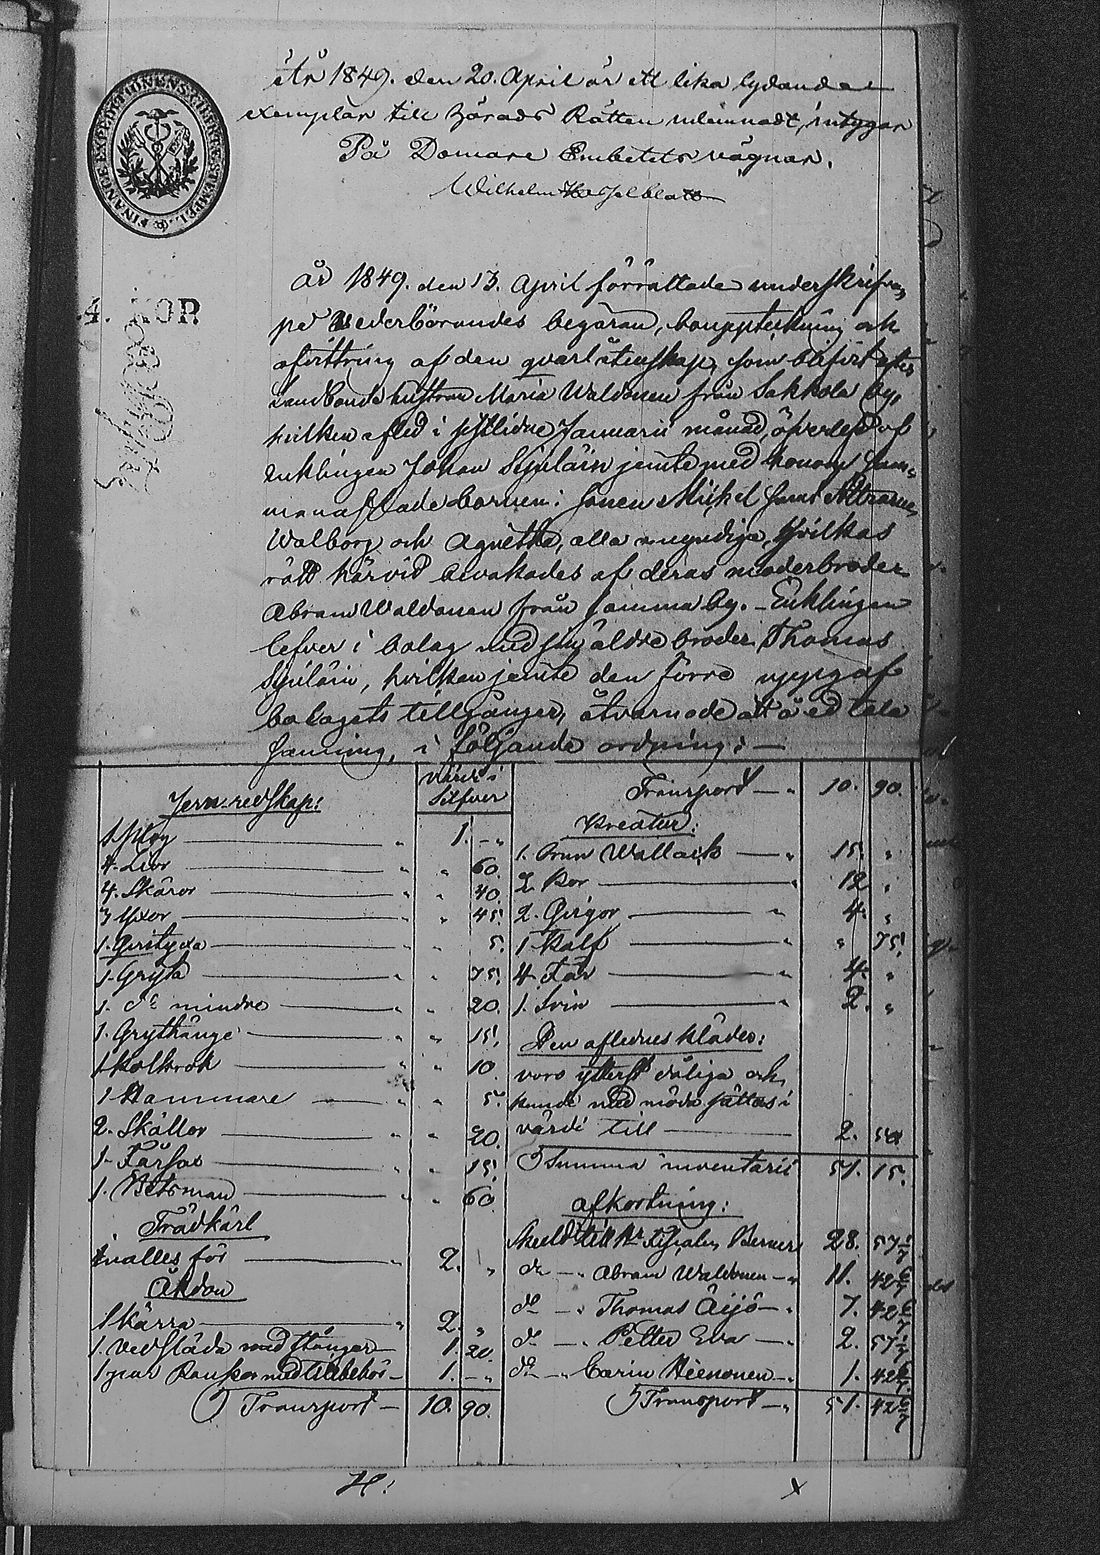 År 1849. den 20. April är ett lika lydande
exemplar till Härads Rätten inlemnadt, intygar
På Domare Embetets vägnar.
Wilhelm Hesselblatt
FINANCE EXPEDITIONENS CHARTE STEMPEL.
4. KOP.
År 1849. den 13. April förrättade underskrifven,
på Vederbörandes begäran, bouppteckning och
afvittring af den qvarlåtenskap, som blifvit efter
Landbonde hustrun Maria Waldonen från Sakkola by,
hvilken afled i sistlidne Januarii månad, öfverlefd af
enklingen Johan
jemte med honom sam-
manaflade barnen: sonen Mickel samt
Walborg och Agnetha, alla omyndiga, hvilkas
rätt härvid bevakades af deras moderbroder
Abram Waldonen från samma by. – Enklingen
lefver i bolag med sin äldre broder Thomas
hvilken jemte den förre uppgaf
bolagets tillgångar, åtvarnade att å ed tala
sanning, i följande ordning: –
Jern redskap:
Värde i
Silfver
1 Plog 1. –
4. Liar 60.
4. Skäror 40.
3 Yxor 45.
1. 5.
1. Gryta 75.
1. do mindre 20.
1. Grythänge 15.
1 Kolkrok 10.
1 Hammare 5.
2. Skällor 20.
1. Fårsax 15.
1. Betsman 60.
Trädkärl
inalles för 2. "
Åkdon
1 Kärra 2. "
1. Vedsläda med stänger 1. 20.
1 par Rankor med tillbehör 1. –
Transport 10. 90.
Transport 10. 90.
Kreatur:
1. brun Wallack 15. "
2. Kor 12 "
2. Qvigor 4. "
1 Kalf " 75.
4 Får 4. "
1. Svin 2. "
Den aflednes kläder:
voro ytterst dåliga och
kunde med möda sättas i
värde till 2. 50
Summa inventarii 51. 15.
Afkortning:
Skuld till Hr Berner 28. 57 1/7
do Abram Waldonen 11. 42 6/7
do Thomas Äijö 7. 42 6/7
do Petter Eva 2. 57 1/7
do Carin Hienonen 1. 42 6/7
Transport 51. 42 6/7